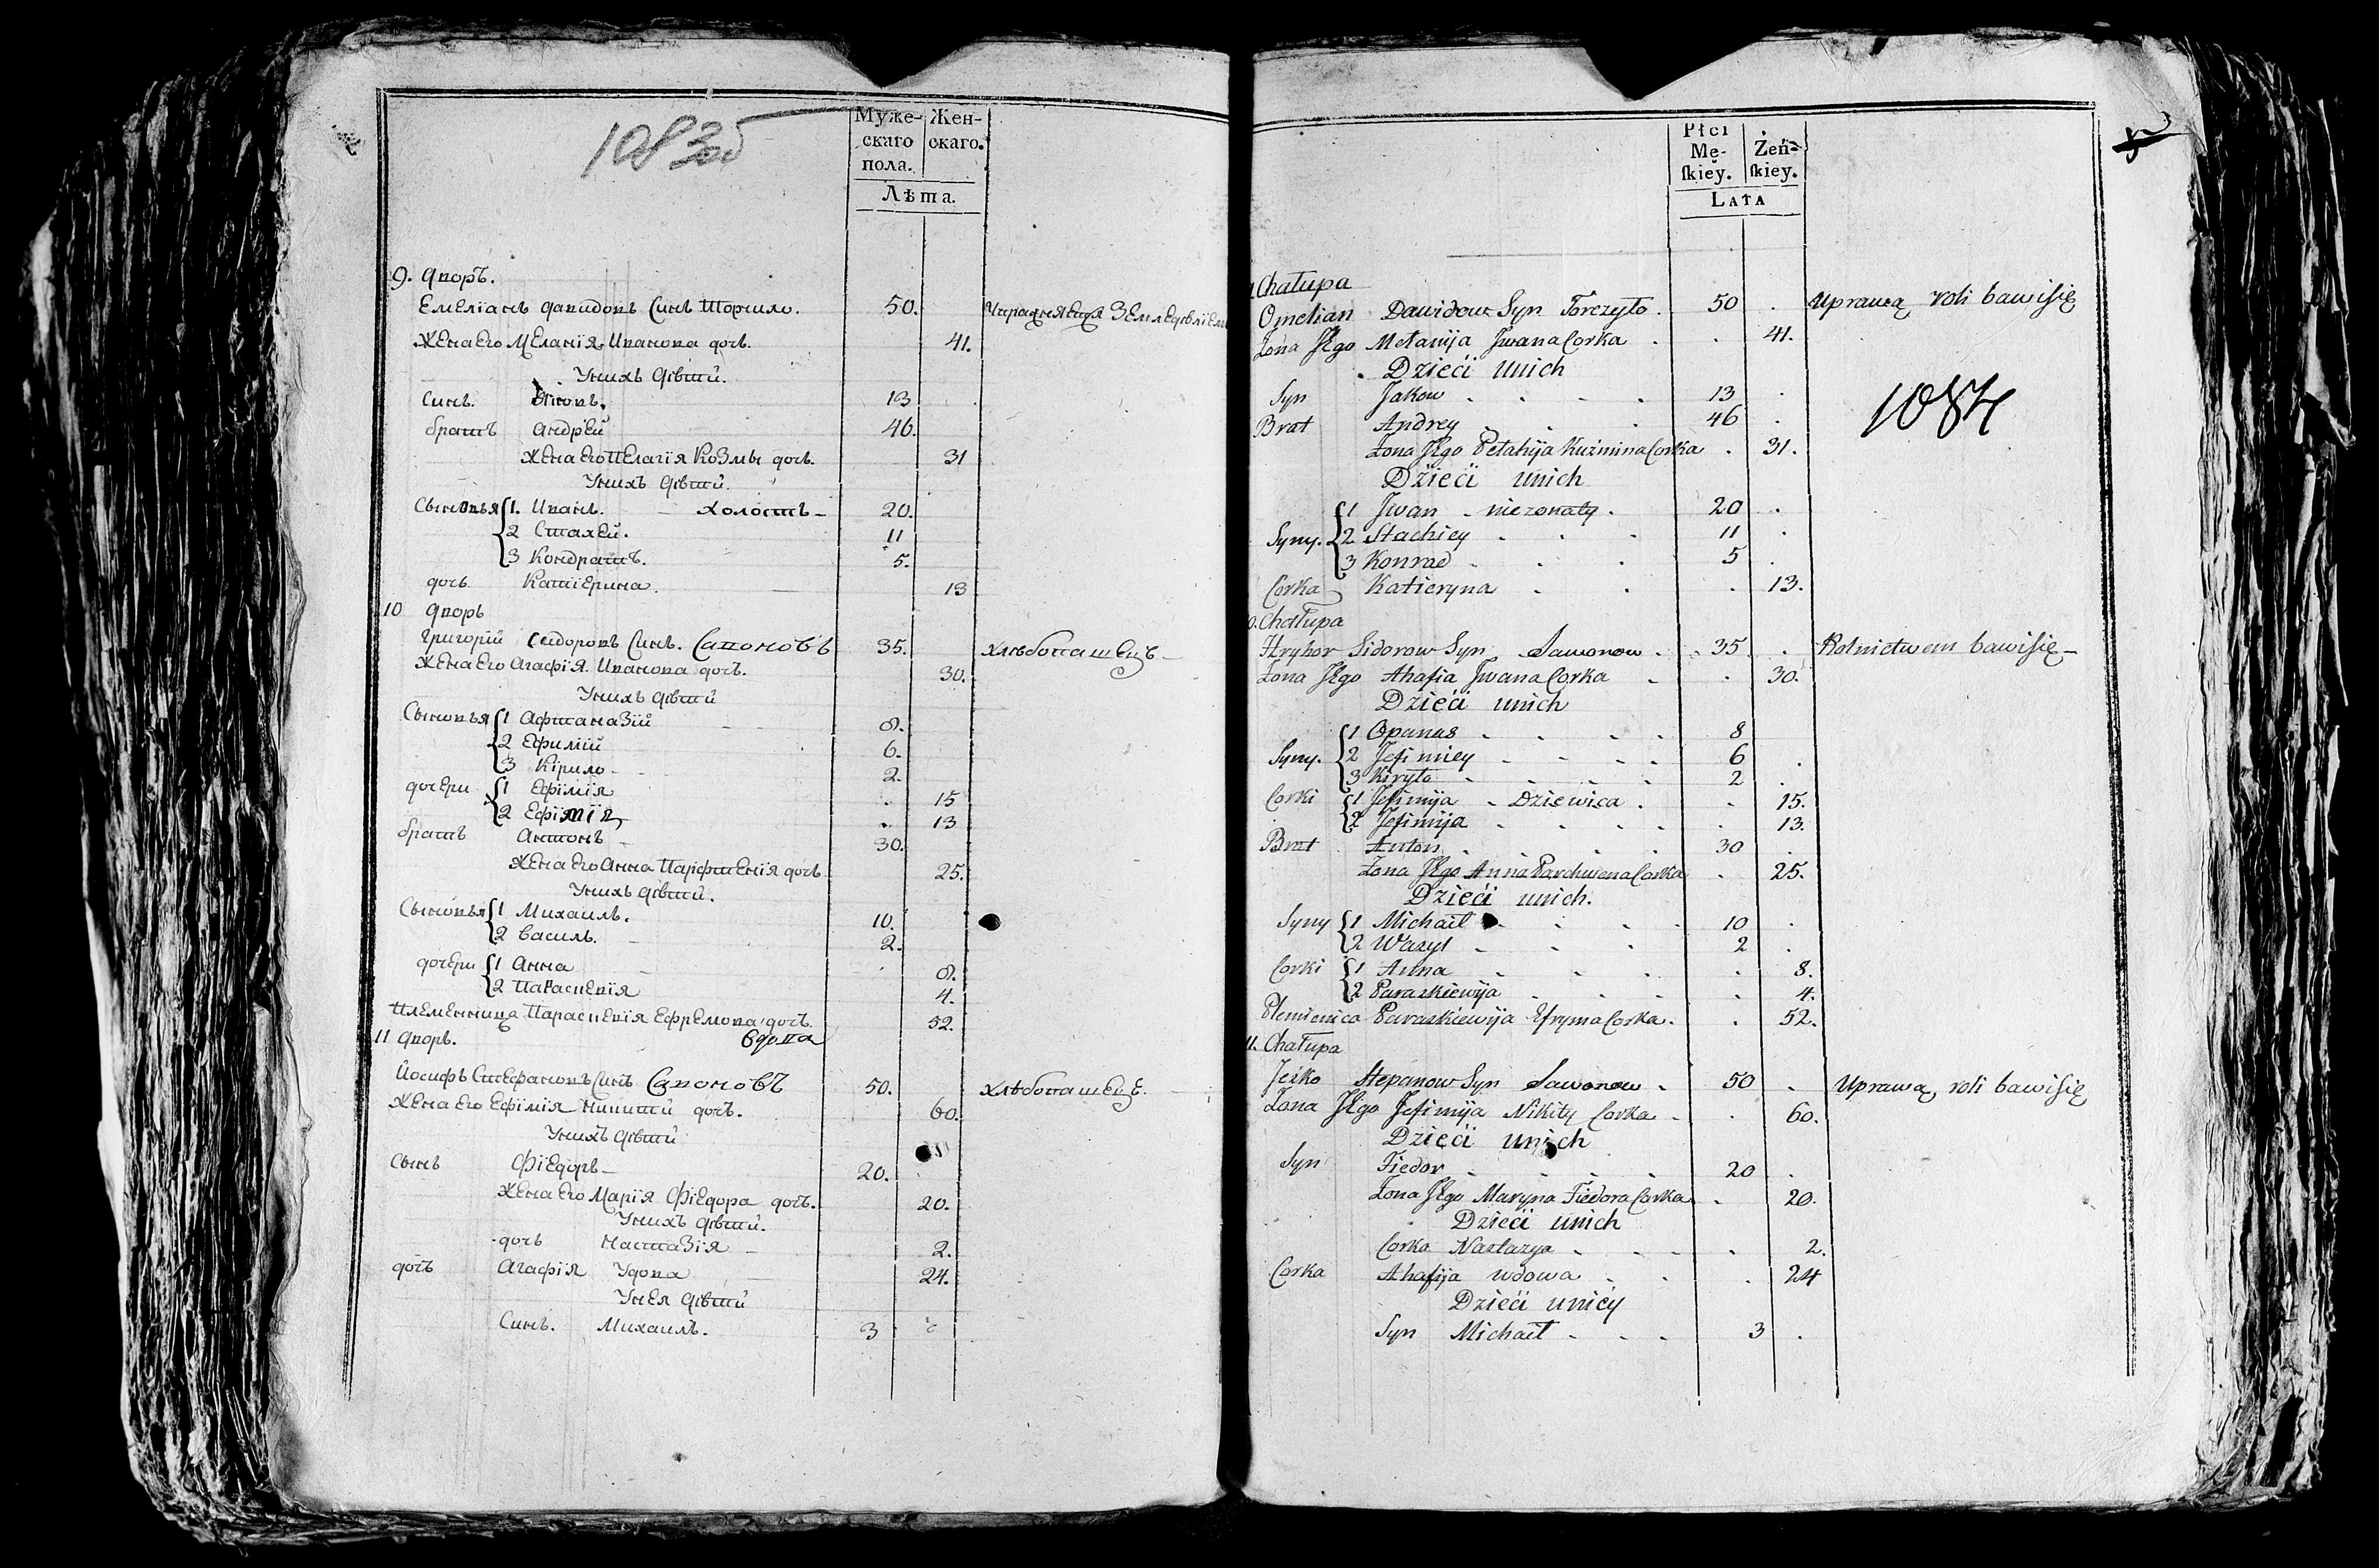 1083об
Муже- Жен-
скаго скаго.
пола.
Лѣта.
9. дворъ.
Емелїанъ давидовъ Синъ Торчило. 50. Упражняется Земледѣлїем
Жена его Меланїя Иванова дочъ. 41.
Унихъ дѣтти.
Синъ. Яковъ. 13
братъ Андрей 46.
Жена его Пелагїя Козмы дочъ. 31
Унихъ дѣтти.
Сыновья 1. Иванъ. холостъ 20.
2 Стахей. 11
3 Кондратъ. 5.
дочъ Катїерина. 13
10 дворъ
Григорїй Сидоровъ Синъ. Савоновъ 35. хлѣбопашецъ
Жена его Агафїя Иванова дочъ. 30.
Унихъ дѣтти
Сыновья 1 Афтаназїй 8.
2 Ефимїй 6.
3 Кірило 2.
дочери 1 Ефїмїя 15
2 Ефїмїя 13
братъ Антонъ 30.
Жена его Анна Парфтенїя дочъ 25.
Унихъ дѣтти.
Сыновья 1 Михаилъ. 10.
2 Василь. 2.
дочери 1 Анна 8.
2 Параскевїя 4.
Племенница Параскевїя Ефремова дочъ. 52.
11 дворъ. Вдова
Йосифъ Стефановъ Синъ Савоновъ 50. хлѣбопашецъ.
Жена его Ефїмїя Никити дочъ. 60.
Унихъ дѣтти
Сынъ Фїедоръ 20.
Жена его Марїя Фїедора дочъ. 20.
Унихъ дѣтти.
дочъ Настазїя 2.
дочъ Агафїя Удова 24.
Унея дѣтти
Синъ. Михаилъ. 3
Płci
Mę- Żeń-
skiey. skiey.
LATA
Chałupa
Omelian Dawidow Syn Torczyło. 50 Uprawą roli bawi się
Zona Jego Mełanija Jwana Corka 41.
Dzieći unich
Syn Jakow 13
Brat Andrey 46
Zona Jego Pełahija Kuźmina Corka 31.
Dzieći unich
1 Jwan niezonaty. 20
Syny. 2 Stachiey 11
3 Konrad 5
Corka Katieryna 13.
10. Chałupa
Hryhor Sidorow Syn Sawonow 35 Rolnictwem bawi się
Zona Jego Ahafia Jwana Corka 30.
Dzieći unich
1 Opanas 8
Syny. 2 Jefimiey 6
3 Kiryło 2
Corki 1 Jefimija Dziewica. 15.
2 Jefimija 13.
Brat Anton 30
Zona Jego Anna Parchwena Corka 25.
Dzieći unich.
Syny 1 Michaił 10
2 Wazyl 2
Corki 1 Anna 8.
2 Paraskiewija 4.
Plemienica Paraskiewija Efryma Corka. 52.
11. Chałupa
Jeśko Stepanow Syn Sawonow 50 Uprawą roli bawi się
Zona Jego Jefimija Nikity Corka 60.
Dzieći unich
Syn Fiedor 20
Zona Jego Maryna Fiedora Corka 20.
Dzieći unich
Corka Nastazya 2.
Corka Ahafija wdowa 24
Dzieći unicy
Syn Michaił 3
1084